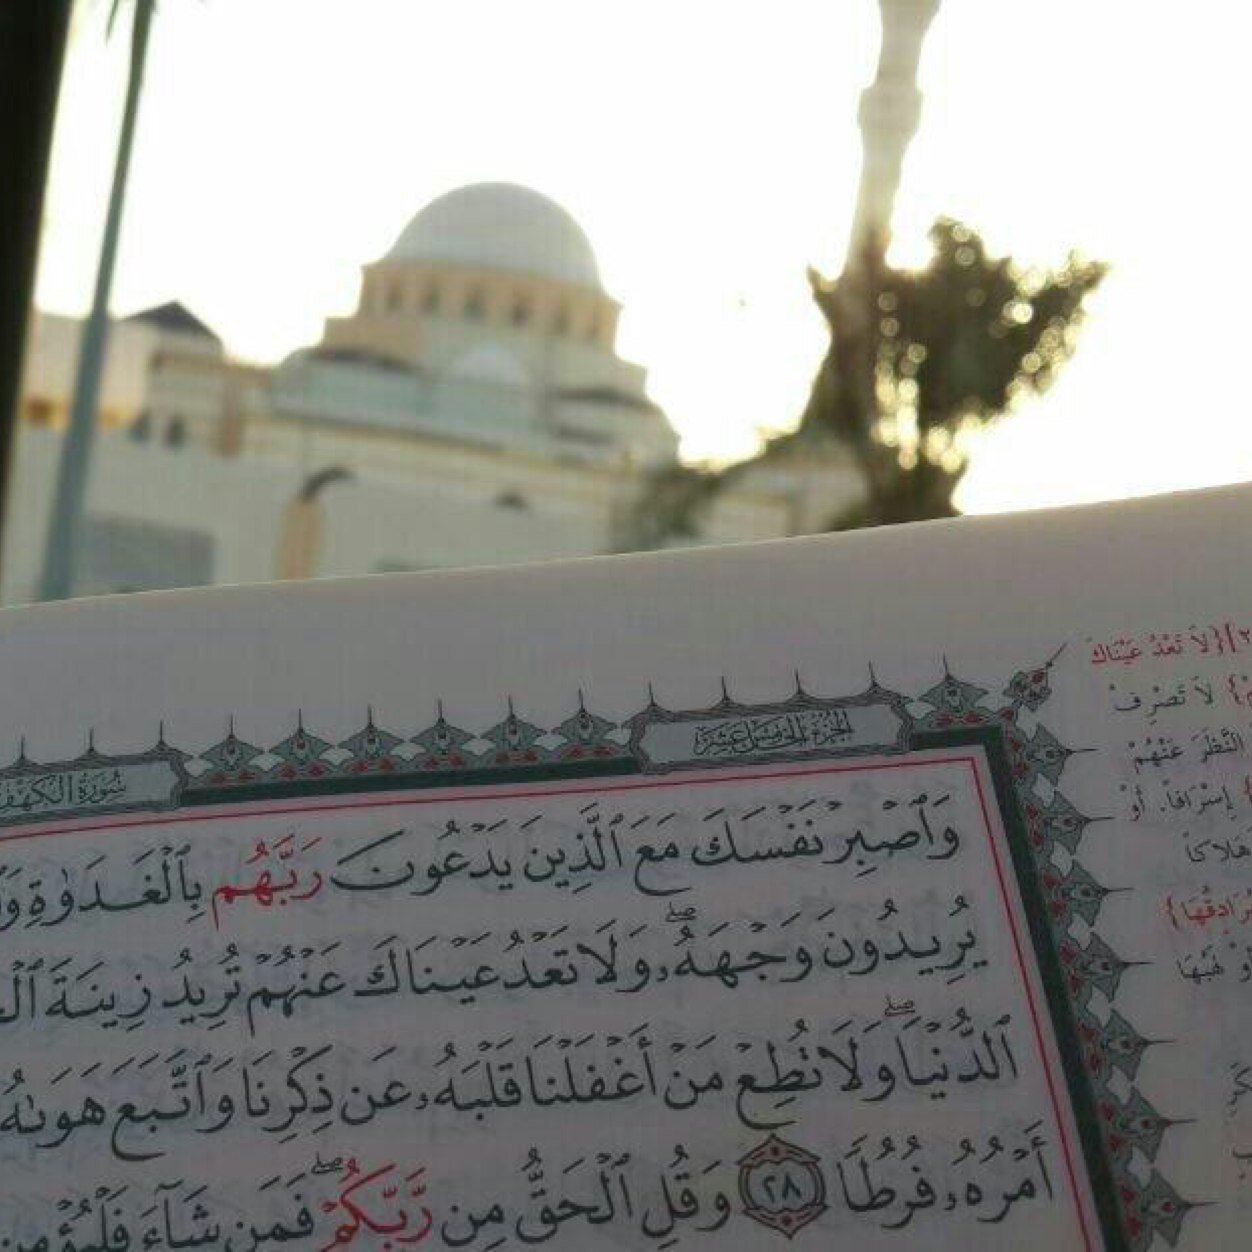 سُورَةُ الكَهْف
الجُزْءُ الخَامِسَ عَشَرَ
وَٱصۡبِرۡ نَفۡسَكَ مَعَ ٱلَّذِينَ يَدۡعُونَ رَبَّهُم بِٱلۡغَدَوٰةِ
يُرِيدُونَ وَجۡهَهُۥۖ وَلَا تَعۡدُ عَيۡنَاكَ عَنۡهُمۡ تُرِيدُ زِينَةَ
ٱلدُّنۡيَاۖ وَلَا تُطِعۡ مَنۡ أَغۡفَلۡنَا قَلۡبَهُۥ عَن ذِكۡرِنَا وَٱتَّبَعَ هَوَىٰهُ
أَمۡرُهُۥ فُرُطٗا ٢٨ وَقُلِ ٱلۡحَقُّ مِن رَّبِّكُمۡۖ فَمَن شَآءَ
{لَا تَعْدُ عَيْنَاكَ
لَا تَصْرِفْ
النَّظَرَ عَنْهُمْ
إِسْرَافاً. أَوْ
هَلَاكاً